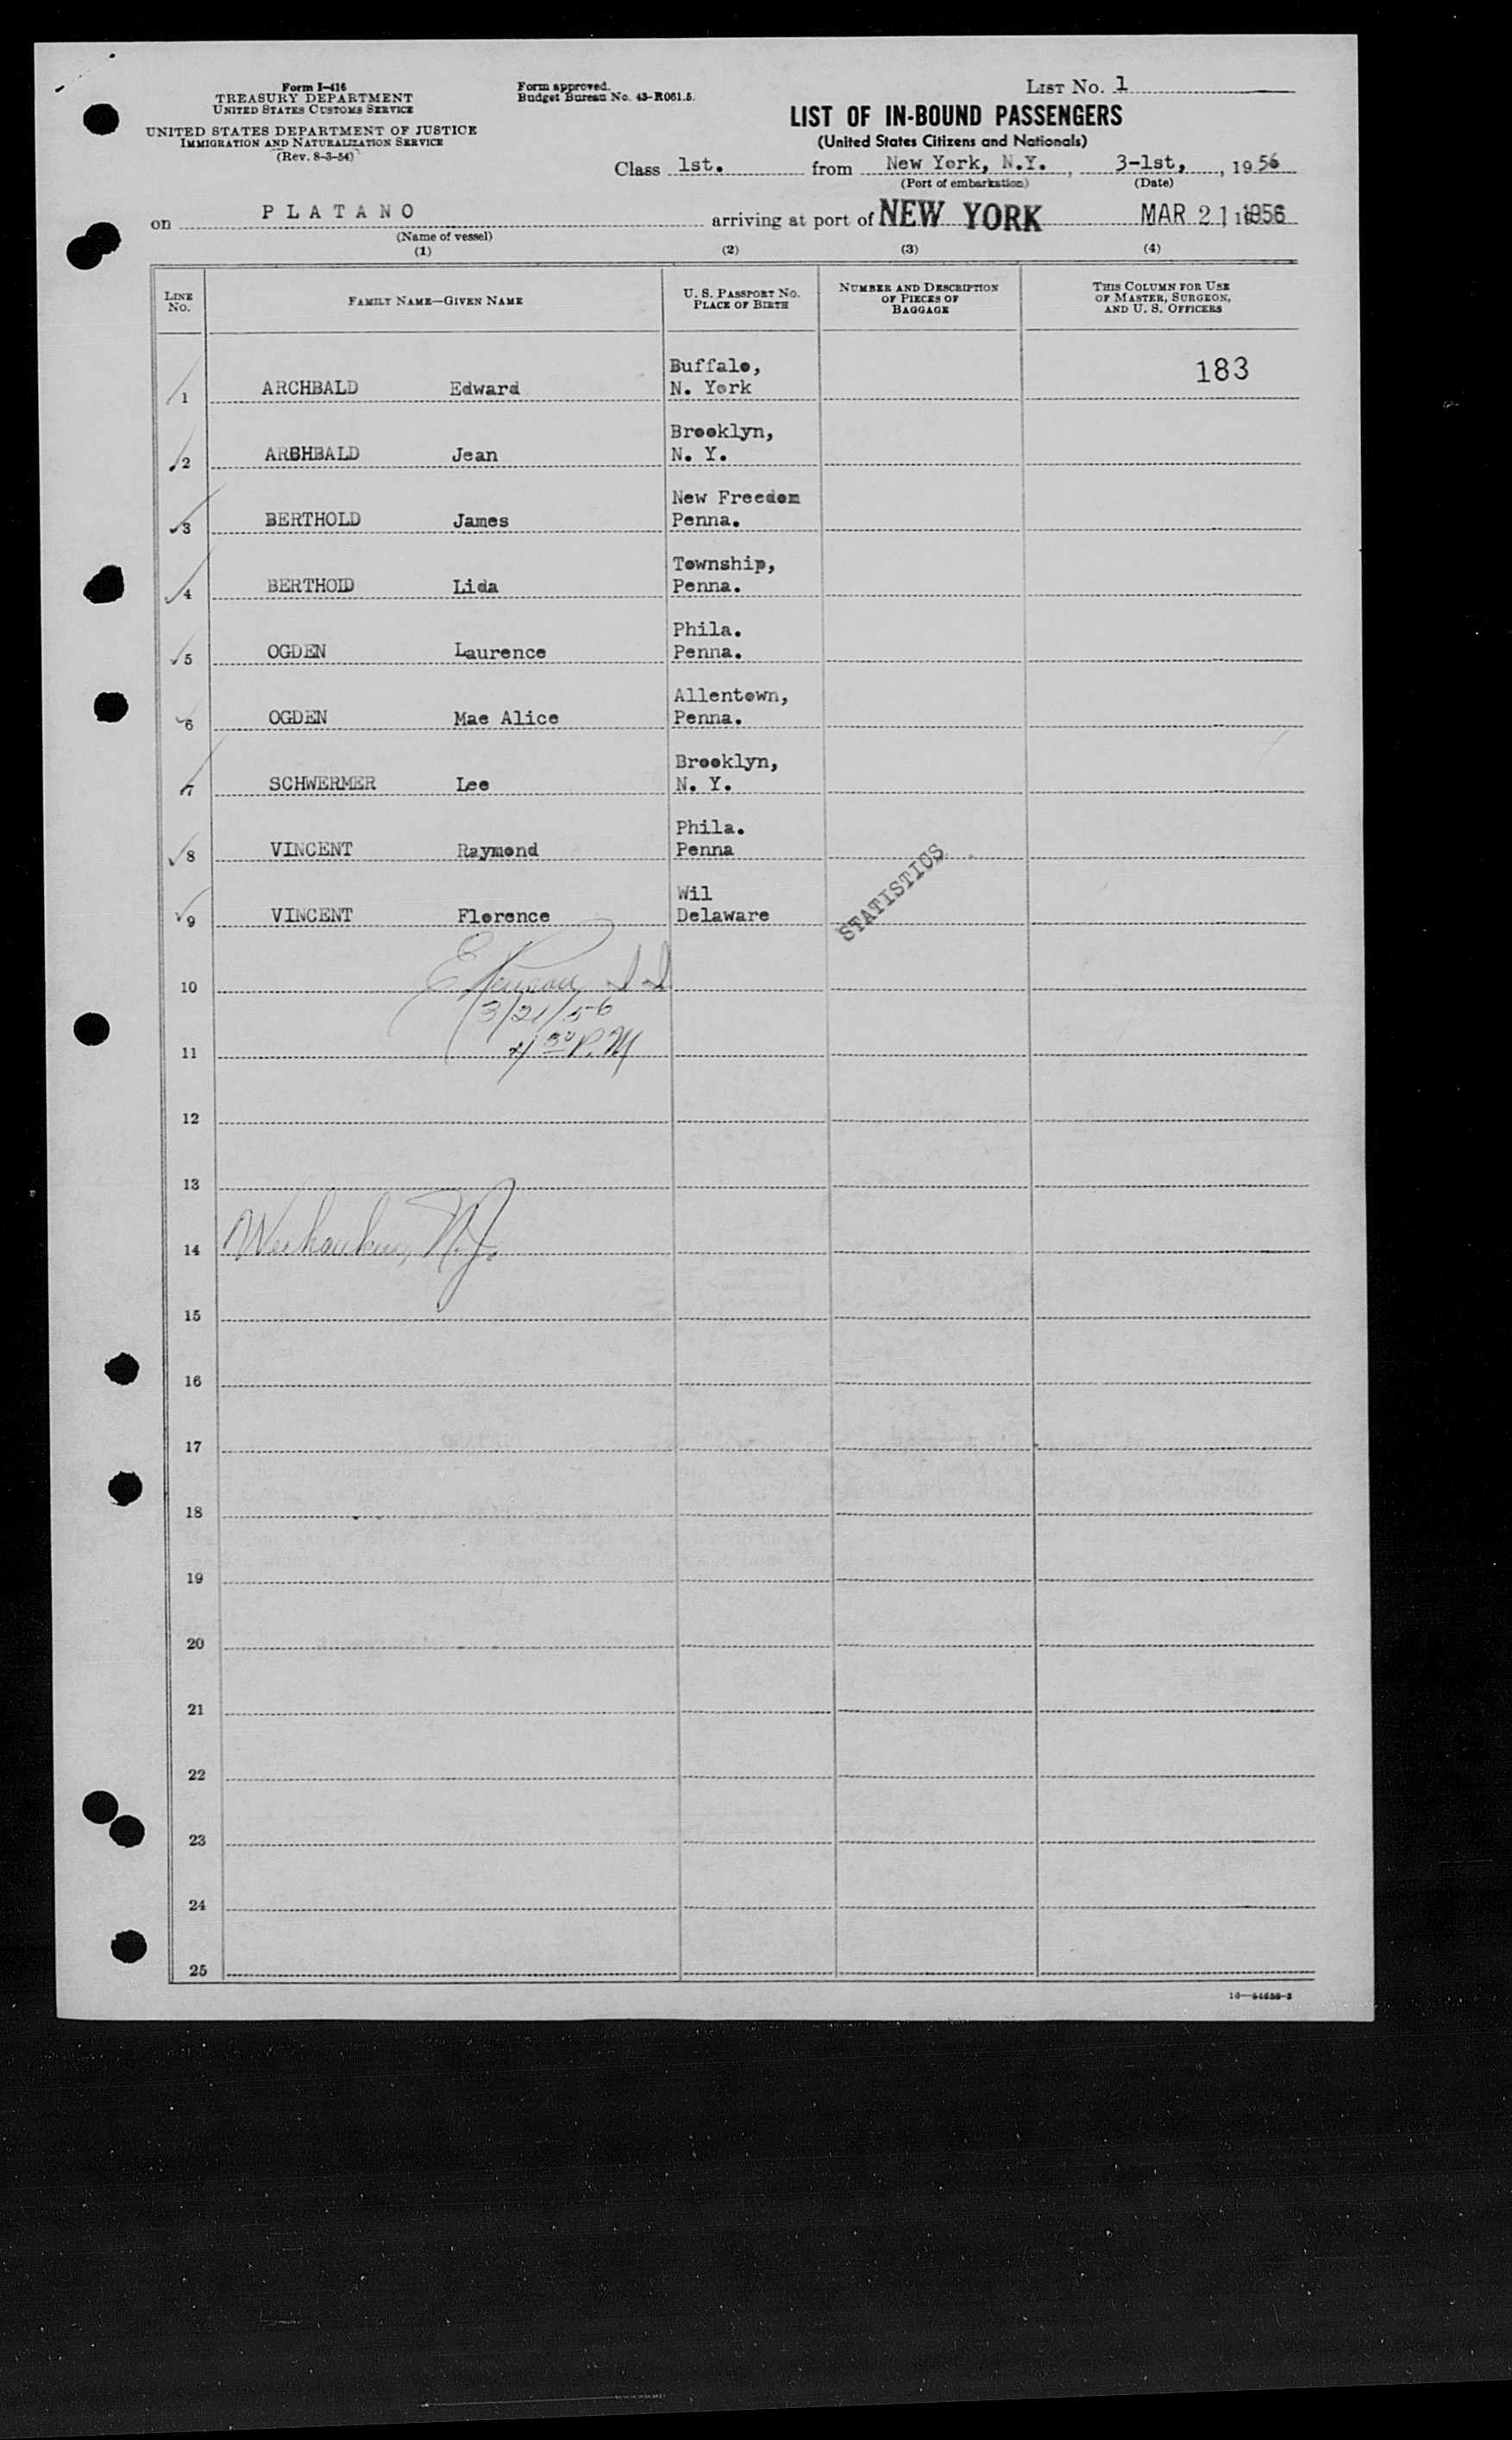 Form I-416
TREASURY DEPARTMENT
UNITED STATES CUSTOMS SERVICE
UNITED STATES DEPARTMENT OF JUSTICE
IMMIGRATION AND NATURALIZATION SERVICE
(Rev. 8-3-54)
Form approved.
Budget Bureau No. 43-R061.5.
LIST NO. 1
LIST OF IN-BOUND PASSENGERS
(United States Citizens and Nationals)
Class 1st. from New York, N.Y. , 3-1st, , 1956
(Port of embarkation) (Date)
on PLATANO arriving at port of NEW YORK MAR 21 1956
(Name of vessel)
(1) (2) (3) (4)
LINE NO. FAMILY NAME—GIVEN NAME U. S. PASSPORT NO. PLACE OF BIRTH NUMBER AND DESCRIPTION OF PIECES OF BAGGAGE THIS COLUMN FOR USE OF MASTER, SURGEON, AND U. S. OFFICERS
Buffalo, 183
1 ARCHBALD Edward N. York
Brooklyn,
2 ARCHBALD Jean N. Y.
New Freedom
3 BERTHOLD James Penna.
Township,
4 BERTHOLD Lida Penna.
Phila.
5 OGDEN Laurence Penna.
Allentown,
6 OGDEN Mae Alice Penna.
Brooklyn,
7 SCHWERMER Lee N. Y.
Phila.
8 VINCENT Raymond Penna
Wil
9 VINCENT Florence Delaware
STATISTICS
10
3/21/56
11 4 30 P.M
12
13
14 Weehawken, N.J.
15
16
17
18
19
20
21
22
23
24
25